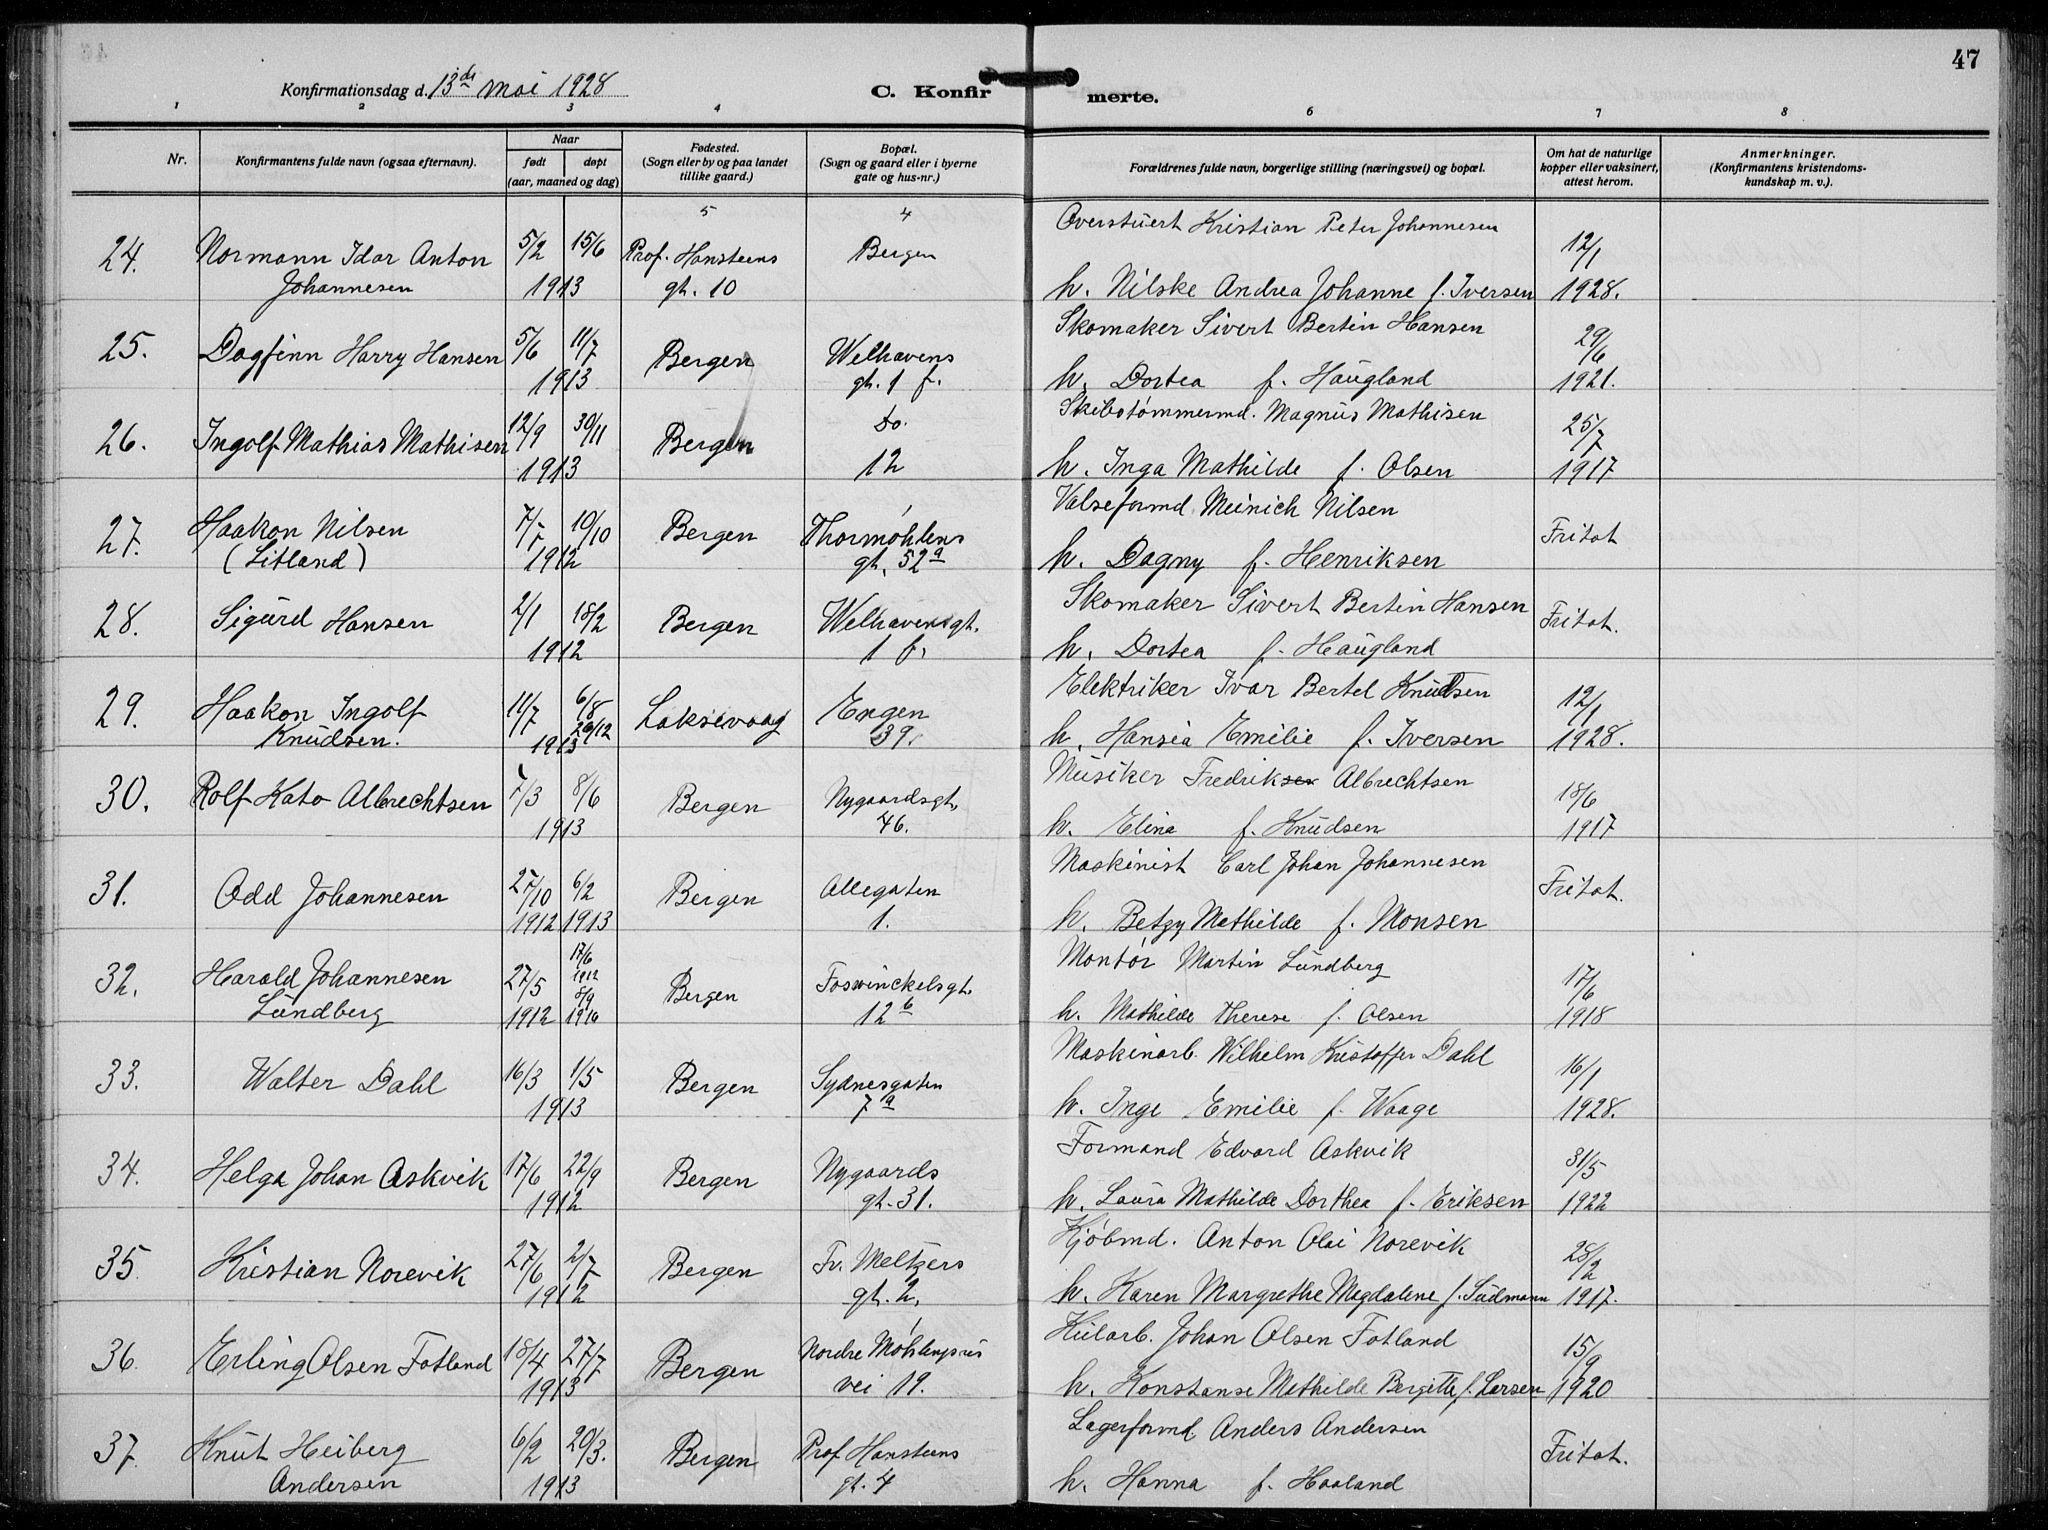 47
Konfirmationsdag d. 13de mai 1928
C. Konfirmerte.
1 2 3 4 5 6 7 8
Nr.
Konfirmantens fulde navn (ogsaa efternavn).
Naar
født
døpt
(aar, maaned og dag)
Fødested.
(Sogn eller by og paa landet
tillike gaard.)
Bopæl.
(Sogn og gaard eller i byerne
gate og hus-nr.)
Forældrenes fulde navn, borgerlige stilling (næringsvei) og bopæl.
Om hat de naturlige
kopper eller vaksinert,
attest herom.
Anmerkninger.
(Konfirmantens kristendoms-
kundskap m. v.).
5 4
24. Normann Idar Anton
Johannesen
5/2 15/6
1913
Prof. Hansteens
gt. 10
Bergen
Overstuert Kristian Peter Johannesen
h. Nilske Andrea Johanne f. Iversen
12/1
1928.
25. Dagfinn Harry Hansen
5/6 11/7
1913
Bergen
Welhavens
gt. 1 f.
Skomaker Sivert Bertin Hansen
h. Dortea f. Haugland
29/6
1921.
26. Ingolf Mathias Mathisen
12/9 30/11
1913
Bergen
Do.
12
Skibstømmermd. Magnus Mathisen
h. Inga Mathilde f. Olsen
25/7
1917
27. Haakon Nilsen
(Litland)
7/7 10/10
1912
Bergen
Thormøhlens
gt. 52a
Valseformd Meinich Nilsen
h. Dagny f. Henriksen
Fritat
28. Sigurd Hansen
2/1 18/2
1912
Bergen
Welhavensgt.
1 f.
Skomaker Sivert Bertin Hansen
h. Dortea f. Haugland
Fritat.
29. Haakon Ingolf
Knudsen.
11/7 6/8
29/12
1913
Laksevaag
Engen
39.
Elektriker Ivar Bertel Knudsen
h. Hansia Emilie f. Iversen
12/1
1928.
30. Rolf Kato Albrechtsen
7/3 8/6
1913
Bergen
Nygaardsgt.
46.
Musiker Fredriksen Albrechtsen
h. Elina f. Knudsen
18/6
1917
31. Odd Johannesen
27/10 6/2
1912 1913
Bergen
Allegaten
1.
Maskinist Carl Johan Johannesen
h. Betzy Mathilde f. Monsen
Fritat.
32. Harald Johannesen
Lundberg
27/5
1912
17/6
1912
8/9
1916
Bergen
Foswinckelsgt.
12b
Montør Martin Lundberg
h. Mathilde Therese f. Olsen
17/6
1918
33. Walter Dahl
16/3 1/5
1913
Bergen
Sydnesgaten
7a
Maskinarb. Wilhelm Kristoffer Dahl
h. Inge Emilie f. Waage
16/1
1928.
34. Helge Johan Askvik
17/6 22/9
1912
Bergen
Nygaards
gt. 31.
Formand Edvard Askvik
h. Laura Mathilde Dorthea f. Eriksen
31/5
1922
35 Kristian Norevik
27/6 2/7
1912
Bergen
Fr. Meltzers
gt. 2.
Kjøbmd. Anton Olai Norevik
h. Karen Margrethe Magdalene f. Sudmann
28/2
1917.
36. Erling Olsen Fotland
18/4 27/7
1913
Bergen
Nordre Møhlenpris
vei 19.
Hularb. Johan Olsen Fotland
h. Konstanse Mathilde Bergitte f. Larsen
15/9
1920
37. Knut Heiberg
Andersen
6/2 20/3.
1913
Bergen
Prof Hansteens
gt. 4
Lagerformd Anders Andersen
h. Hanna f. Haaland
Fritat.